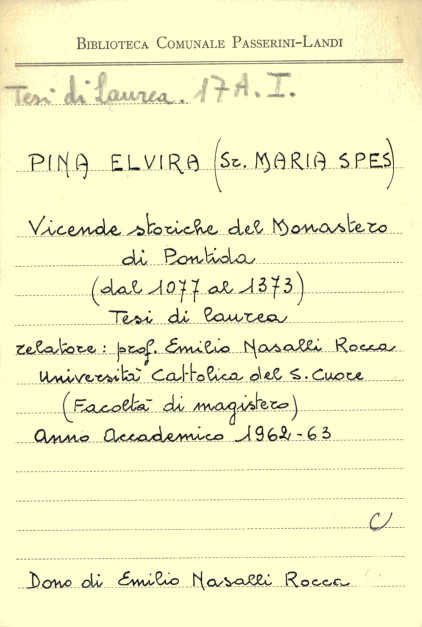 BIBLIOTECA COMUNALE PASSERINI-LANDI
Tesi di laurea. 17 A. I.
PINA ELVIRA (Sr. MARIA SPES)
Vicende storiche del Monastero
di Pontida
(dal 1077 al 1373)
Tesi di laurea
relatore: prof. Emilio Nasalli Rocca
Università Cattolica del S. Cuore
(Facoltà di magistero)
Anno Accademico 1962-63
C
Dono di Emilio Nasalli Rocca